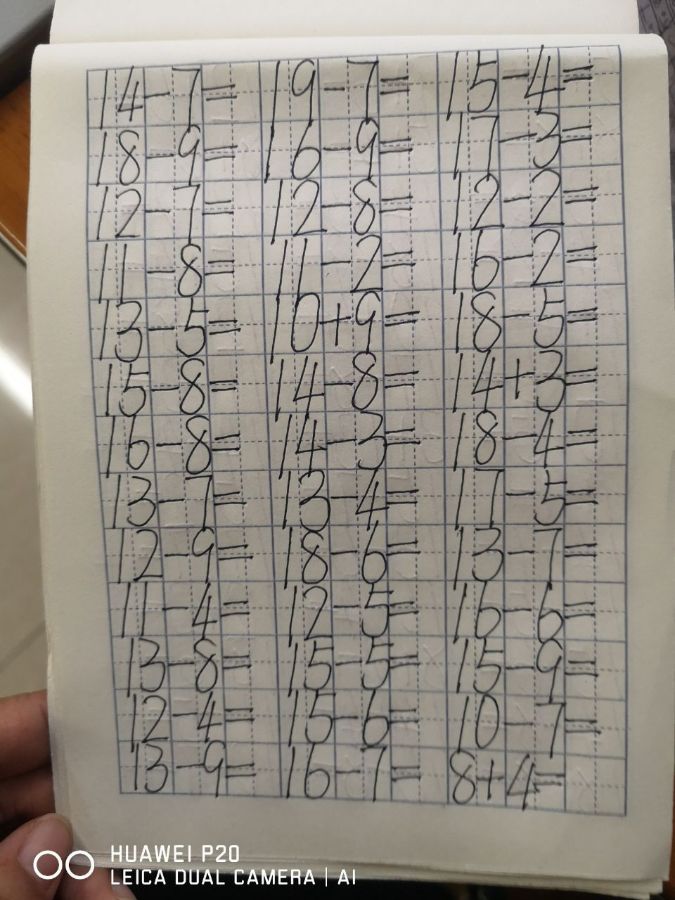 14-7= 19-7= 15-4=
18-9= 16-9= 17-3=
12-7= 12-8= 12-2=
11-8= 11-2= 16-2=
13-5= 10+9= 18-5=
15-8= 14-8= 14+3=
16-8= 14-3= 18-4=
13-7= 13-4= 17-5=
12-9= 18-6= 13-7=
11-4= 12-5= 16-6=
13-8= 15-5= 15-9=
12-4= 15-6= 10-7=
13-9= 16-7= 8+4=
HUAWEI P20
LEICA DUAL CAMERA | AI